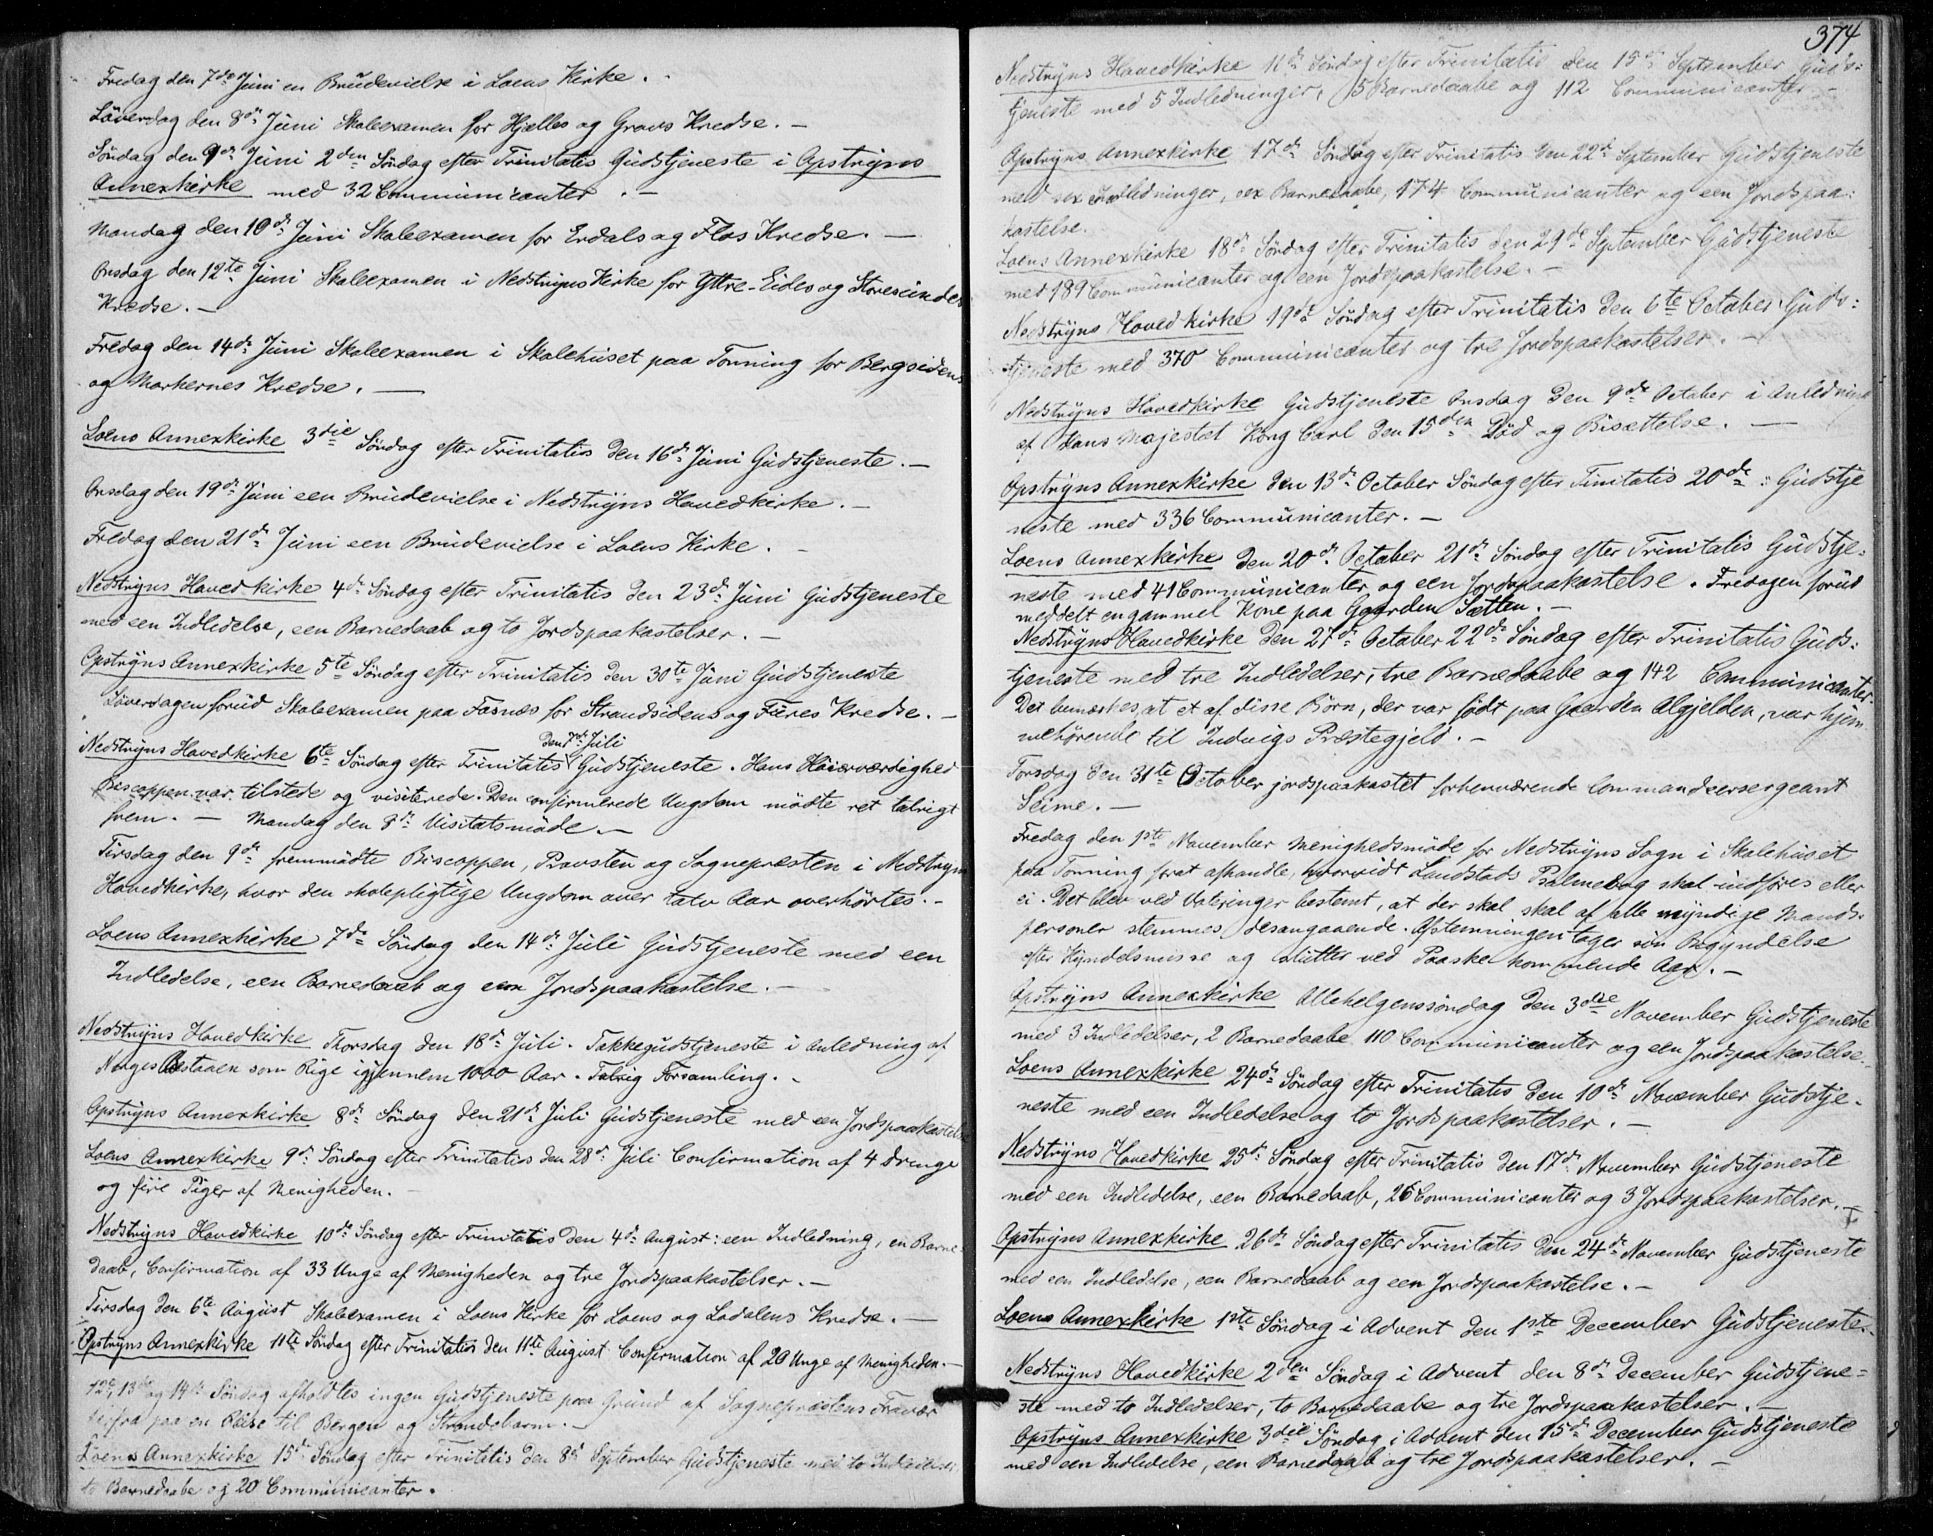 Fredag den 7de Juni en Brudevielse i Loens Kirke.
Löverdag den 8de Juni Skoleexamen for Hjelles og Gravs Kredse. —
Söndag den 9de Juni 2den Söndag efter Trinitatis Gudstjeneste i Opstryns
Annexkirke med 32 Communicanter. —
Mandag den 10de Juni Skoleexamen for Erdals og Flos Kredse. —
Onsdag den 12te Juni Skoleexamen i Nedstryns Kirke for Yttre-Eides og Storesunds
Kredse. —
Fredag den 14de Juni Skoleexamen i Skolehuset paa Tonning for Bergsidens
og Morkernes Kredse. —
Loens Annexkirke 3die Söndag efter Trinitatis den 16de Juni Gudstjeneste. —
Onsdag den 19de Juni een Brudevielse i Nedstryns Hovedkirke. —
Fredag den 21de Juni een Brudevielse i Loens Kirke. —
Nedstryns Hovedkirke 4de Söndag efter Trinitatis den 23de Juni Gudstjeneste
med een Indledelse, een Barnedaab og to Jordspaakastelser. —
Opstryns Annexkirke 5te Söndag efter Trinitatis den 30te Juni Gudstjeneste
Löverdagen forud Skoleexamen paa Fosnes for Strandsidens og Fieres Kredse. —
den 7de Juli
Nedstryns Hovedkirke 6te Söndag efter Trinitatis Gudstjeneste. Hans Höiærværdighed
Biscoppen var tilstede og visiterede. Den confirmerede Ungdom mödte ret talrigt
frem. — Mandag den 8de Visitatsmöde. —
Tirsdag den 9de fremmödte Biscoppen, Provsten og Sognepræsten i Nedstryns
Hovedkirke, hvor den skolepligtige Ungdom over tolv Aar overhörtes. —
Loens Annexkirke 7de Söndag den 14de Juli Gudstjeneste med een
Indledelse, een Barnedaab og een Jordspaakastelse. —
Nedstryns Hovedkirke Thorsdag den 18de Juli. Takkegudstjeneste i Anledning af
Norges Bestaaen som Rige igjennem 1000 Aar. Talrig Forsamling. —
Opstryns Annexkirke 8de Söndag den 21de Juli Gudstjeneste med een Jordspaakastelse
Loens Annexkirke 9de Söndag efter Trinitatis den 28de Juli Confirmation af 4 Drenge
og fire Piger af Menigheden. —
Nedstryns Hovedkirke 10de Söndag efter Trinitatis den 4de August: een Indledning, en Barne-
daab, Confirmation af 33 Unge af Menigheden og tre Jordspaakastelser. —
Tirsdag den 6te August Skoleexamen i Loens Kirke for Loens og Lodalens Kredse. —
Opstryns Annexkirke 11te Söndag efter Trinitatis den 11te August Confirmation af 20 Unge af Menigheden. —
12te, 13de og 14de Söndag afholdtes ingen Gudstjeneste paa Grund af Sognepræstens Fravær
herfra paa en Reise til Bergen og Strandebarm. —
Loens Annexkirke 15de Söndag efter Trinitatis den 8de September Gudstjeneste med to Indledelser,
to Barnedaabe og 20 Communicanter.
374
Nedstryns Hovedkirke 16de Söndag efter Trinitatis den 15de September Guds-
tjeneste med 5 Indledninger, 5 Barnedaabe og 112 Communicanter —
Opstryns Annexkirke 17de Söndag efter Trinitatis den 22de September Gudstjeneste
med sex Indledninger, sex Barnedaabe, 174 Communicanter og een Jordspaa-
kastelse.
Loens Annexkirke 18de Söndag efter Trinitatis den 29de September Gudstjeneste
med 189 Communicanter og een Jordspaakastelse. —
Nedstryns Hovedkirke 19de Söndag efter Trinitatis den 6te October Guds-
tjeneste med 370 Communicanter og tre Jordspaakastelser. —
Nedstryns Hovedkirke Gudstjeneste Onsdag den 9de October i Anledning
af Hans Majestæt Kong Carl den 15des Död og Bisættelse. —
Opstryns Annexkirke den 13de October Söndag efter Tinitatis 20de: Gudstje
neste med 336 Communicanter. —
Loens Annexkirke den 20de October 21de Söndag efter Trinitatis Gudstje-
neste med 41 Communicanter og een Jordspaakastelse. Fredagen forud
meddelt en gammel Kone paa Gaarden Sætten. —
Nedstryns Hovedkirke den 27de October 22de Söndag efter Trinitatis Guds-
tjeneste med tre Indledelser, tre Barnedaabe og 142 Communicanter.
Det bemærkes, at et af disse Börn, der var födt paa Gaarden Algjelden, var hjem
mehörende til Indvigs Præstegjeld. —
Torsdag den 31te October jordspaakastet forhenværende Commandeersergeant
Seime. —
Fredag den 1ste November Menighedsmöde for Nedstryns Sogn i Skolehuset
paa Tonning for at afhandle, hvorvidt Landstads Psalmebog skal indföres eller
ei. Det blev ved Voteringer bestemt, at der skal skal af alle myndige Mands-
personer stemmes desangaaende. Afstemningen tager sin Begyndelse
efter Kyndelsmisse og slutter ved Paaske kommende Aar. —
Opstryns Annexkirke Allehelgenssöndag den 3die November Gudstjeneste
med 3 Indledelser, 2 Barnedaabe 110 Communicanter og een Jordspaakastelse.
Loens Annexkirke 24de Söndag efter Trinitatis den 10de November Gudstje-
neste med een Indledelse og to Jordspaakastelser. —
Nedstryns Hovedkirke 25de Söndag efter Trinitatis den 17de November Gudstjeneste
med een Indledelse, een Barnedaab, 26 Communicanter og 3 Jordspaakastelser. —
Opstryns Annexkirke 26de Söndag efter Trinitatis den 24de November Gudstjeneste
med een Indledelse, een Barnedaab og een Jordspaakastelse. —
Loens Annexkirke 1ste Söndag i Advent den 1ste December Gudstjeneste. —
Nedstryns Hovedkirke 2den Söndag i Advent den 8de December Gudstjene-
ste med to Indledelser, to Barnedaabe og tre Jordspaakastelser. —
Opstryns Annexkirke 3die Söndag i Advent den 15de December Gudstjeneste
med een Indledelse, een Barnedaab og tre Jordspaakastelser. —